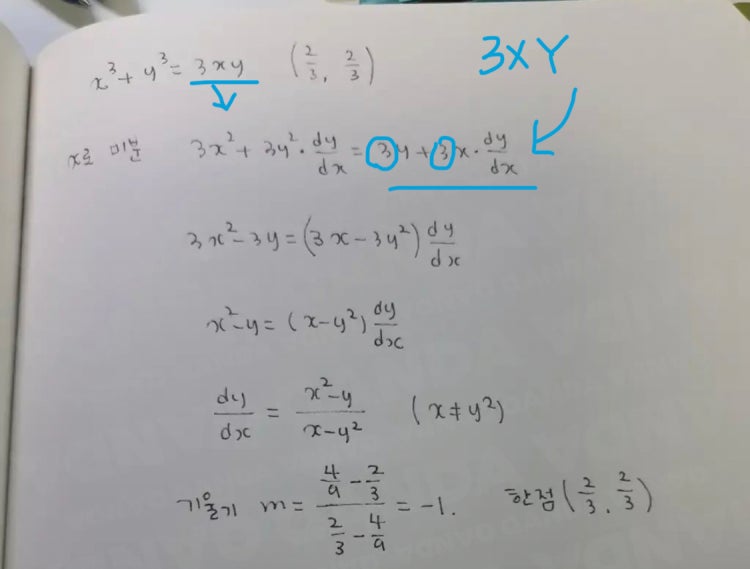 x³ + y³ = 3xy (2/3, 2/3) 3XY
x로 미분 3x² + 3y² · dy/dx = 3y + 3x · dy/dx
3x² - 3y = (3x - 3y²) dy/dx
x² - y = (x - y²) dy/dx
dy/dx = (x² - y)/(x - y²) (x ≠ y²)
기울기 m = (4/9 - 2/3)/(2/3 - 4/9) = -1. 한점 (2/3, 2/3)